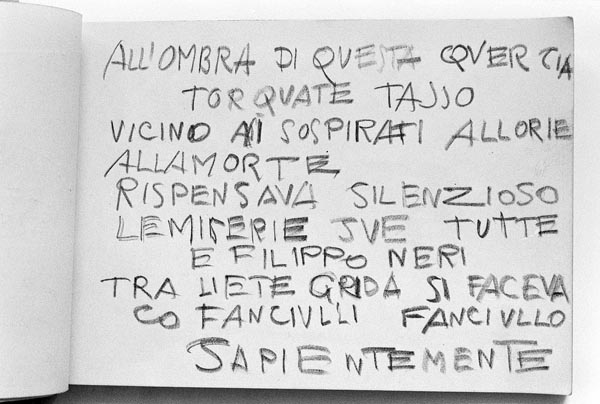 ALL'OMBRA DI QUESTA QVERCIA
TORQVATE TASSO
VICINO AI SOSPIRATI ALLORIE
ALLAMORTE
RISPENSAVA SILENZIOSO
LEMISERIE SVE TUTTE
E FILIPPO NERI
TRA LIETE GRIDA SI FACEVA
CO FANCIVLLI FANCIVLLO
SAPIENTEMENTE